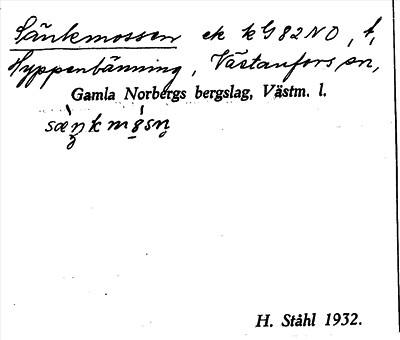 Sänkmossen ek kG82NO, f,
Hyppenbänning, Västanfors sn,
Gamla Norbergs bergslag, Västm. l.
H. Ståhl 1932.